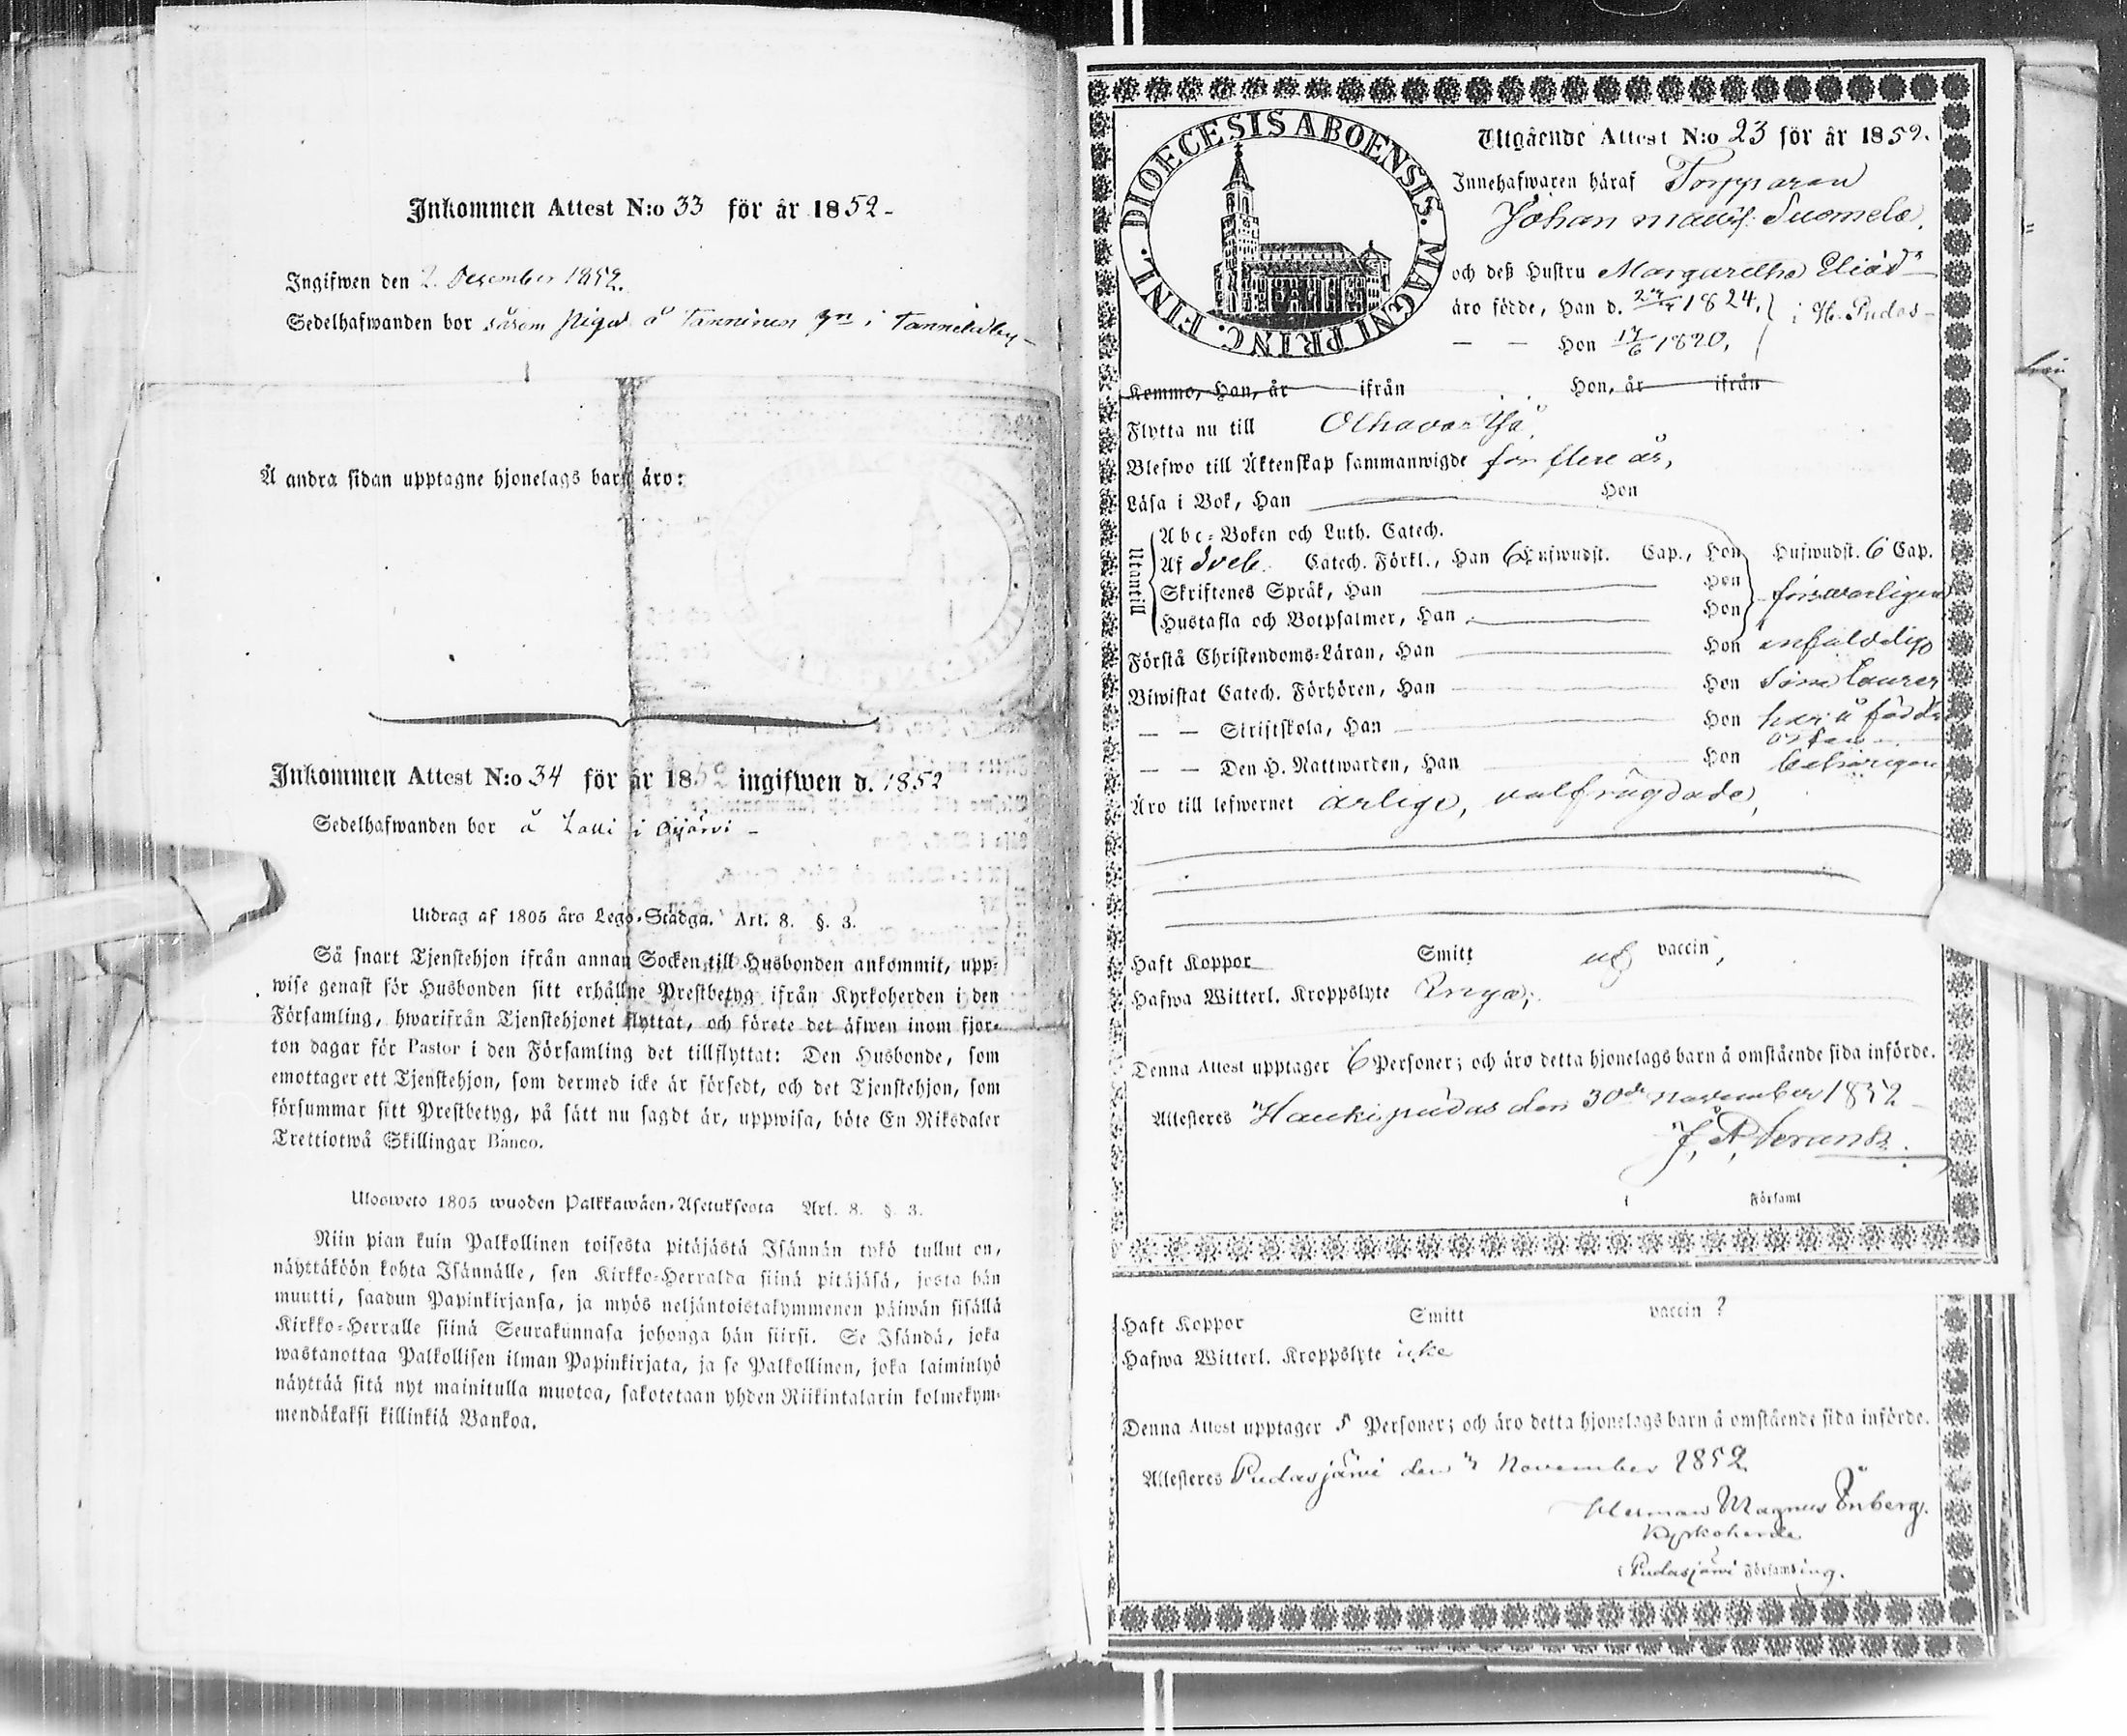 Inkommen Attest N:o 33 för år 1852-
Ingifwen den 2. December 1852.
Sedelhafwanden bor såsom Piga å Tanninen i Tannilaby
Å andra sidan upptagne hjonelags barn äro:
Inkommen Attest N:o 34 för år 1852 ingifwen d. 1852
Sedelhafwanden bor å Lalli i Oijärvi -
Utdrag af 1805 års Lego-Stadga. Art. 8. §. 3.
Så snart Tjenstehjon ifrån annan Socken till Husbonden ankommit, upp-
wise genast för Husbonden sitt erhållne Prestbetyg ifrån Kyrkoherden i den
Församling, hwarifrån Tjenstehjonet flyttat, och förete det äfwen inom fjor-
ton dagar för Pastor i den Församling det tillflyttat: Den Husbonde, som
emottager ett Tjenstehjon, som dermed icke är försedt, och det Tjenstehjon, som
försummar sitt Prestbetyg, på sätt nu sagdt är, uppwisa, böte En Riksdaler
Trettiotwå Skillingar Banco.
Ulosweto 1805 wuoden Palkkawäen-Asetuksesta Art. 8. §. 3.
Niin pian kuin Palkollinen toisesta pitäjästä Isännän tykö tullut on,
näyttäköön kohta Isännälle, sen Kirkko-Herralda siinä pitäjäsä, josta hän
muutti, saadun Papinkirjansa, ja myös neljäntoistakymmenen päiwän sisällä
Kirkko-Herralle siinä Seurakunnasa johonga hän siirsi. Se Isändä, joka
wastanottaa Palkollisen ilman Papinkirjata, ja se Palkollinen, joka laiminlyö
näyttää sitä nyt mainitulla muotoa, sakotetaan yhden Riikintalarin kolmekym-
mendäkaksi killinkiä Bankoa.
DIOECESIS ABOENSIS. MAGNI PRINC. FINL.
Utgående Attest N:o 23 för år 1852.
Innehafwaren häraf Torpparen
Johan Suomela,
och deß Hustru Margaretha Eliasd:r
äro födde, Han d. 1824. i H. Pudas-
— — Hon 17/6 1820,
Komme, Han, år ifrån Hon, år ifrån
Flytta nu till Olhava
Blefwo till Äktenskap sammanwigde för flere år,
Läsa i Bok, Han Hon
Utantill
Abc-Boken och Luth. Catech.
Af Sveb. Catech. Förkl., Han 6 Hufwudst. Cap., Hon Hufwudst. 6 Cap.
Skriftenes Språk, Han Hon försvarligen
Hustafla och Botpsalmer, Han Hon
Förstå Christendoms-Läran, Han Hon enfaldige
Biwistat Catech. Förhören, Han Hon
— — Skriftskola, Han Hon
— — Den H. Nattwarden, Han Hon behörigen
Äro till lefwernet ärlige, välfrägdade,
Haft Koppor Smitt vaccin,
Hafwa Witterl. Kroppslyte Inga;
Denna Attest upptager 6 Personer; och äro detta hjonelags barn å omstående sida införde.
Attesteres Haukipudas den 30de November 1852
i Församl
Haft Koppor Smitt vaccin ?
Hafwa Witterl. Kroppslyte icke
Denna Attest upptager Personer; och äro detta hjonelags barn å omstående sida införde.
Attesteres Pudasjärvi den November 1852
Herman Magnus Önberg.
Kyrkoherde
i Pudasjärvi Församling.